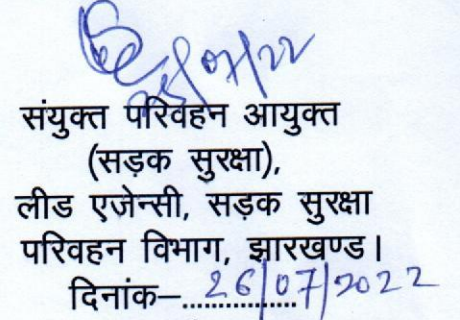 25/07/22
संयुक्त परिवहन आयुक्त
(सड़क सुरक्षा),
लीड एजेन्सी, सड़क सुरक्षा
परिवहन विभाग, झारखण्ड।
दिनांक–..............26/07/2022